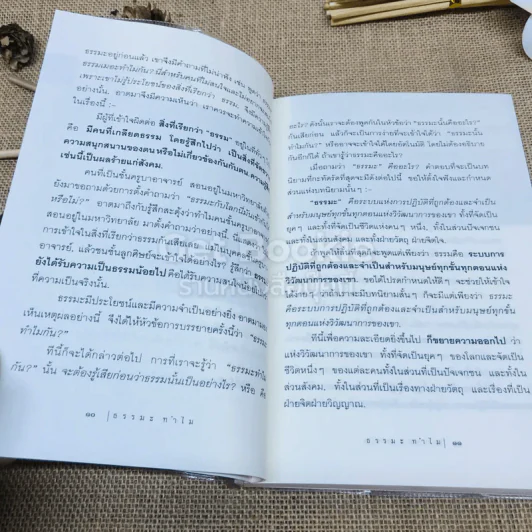 ธรรมะอยู่ก่อนแล้ว เขาจึงมีคำถามที่ไม่น่าฟัง เช่น
ธรรมเมอะทำไมกัน? มีสำหรับคนที่ไม่สนใจและไม่
เพราะเขาไม่รู้ประโยชน์ของสิ่งที่เรียกว่า ธรรม
อย่างนั้น อาตมาจึงมีความเห็นว่า เราควรจะทำความ
ในเรื่องนี้ :-
มีผู้ที่เข้าใจผิดต่อ สิ่งที่เรียกว่า "ธรรม"
คือ มีคนที่เกลียดธรรม โดยรู้สึกไปว่า เป็นสิ่งที่
ความสนุกสนานของตน หรือไม่เกี่ยวข้องกันกับตน
เช่นนี้เป็นผลร้ายแก่สังคม.
คนที่เป็นชั้นครูบาอาจารย์ สอนอยู่ในมหาวิทยาลัย
ยังมาขอถามด้วยการตั้งคำถามว่า "ธรรมะกับโลก
หรือไม่?" อาตมาถึงกับรู้สึกสะดุ้งว่าทำไมคนชั้นครู
สอนอยู่ในมหาวิทยาลัย มาตั้งคำถามว่าอย่างนี้.
การเข้าใจในสิ่งที่เรียกว่าธรรมเสียเลย,
อาจารย์, แล้วชนชั้นลูกศิษย์จะเข้าใจได้อย่างไร?
ยังได้รับความเป็นธรรมน้อยไป คือได้รับความสนใจน้อย
ที่ความเป็นจริงนั้น.
ธรรมะมีประโยชน์และมีความจำเป็นอย่างยิ่ง
เห็นเหตุผลอย่างนี้ จึงได้ให้หัวข้อการบรรยายครั้งนี้ว่า "ธรรมะ
ทำไมกัน?"
ทีนี้ก็จะได้กล่าวต่อไป การที่เราจะรู้ว่า "ธรรมะทำไม
กัน?" นั้น จะต้องรู้เสียก่อนว่าธรรมนั้นเป็นอย่างไร? หรือ คือ
๑๐ | ธรรมะ ทำไม
อะไร? ดังนั้นเราจะต้องพูดกันในหัวข้อว่า "ธรรมะนั้นคืออะไร?"
กันเสียก่อน แล้วก็จะเป็นการง่ายที่จะเข้าใจได้ว่า "ธรรมะนั้น
ทำไมกัน?" หรืออาจจะเข้าใจได้โดยอัตโนมัติ โดยไม่ต้องอธิบาย
กันอีกก็ได้ ถ้าเขารู้ว่าธรรมะคืออะไร?
เมื่อถามว่า "ธรรมะ" คืออะไร? คำตอบที่จะเป็นบท
นิยามที่กะทัดรัดที่สุดจะมีได้ต่อไปนี้ ขอให้ตั้งใจฟังและกำหนด
ส่วนแห่งบทนิยามนั้นๆ :-
"ธรรมะ" คือระบบแห่งการปฏิบัติที่ถูกต้องและจำเป็น
สำหรับมนุษย์ทุกขั้นทุกตอนแห่งวิวัฒนาการของเขา, ทั้งที่จัดเป็น
ยุคๆ และทั้งที่จัดเป็นชีวิตแต่ละคนๆ หนึ่ง, ทั้งในส่วนปัจเจกชน และทั้ง
ในส่วนสังคม และทั้งฝ่ายวัตถุ ฝ่ายจิตใจ.
ถ้าพูดให้สั้นที่สุดก็จะมีแต่เพียงว่า ธรรมะ คือ ระบบการ
ปฏิบัติที่ถูกต้องและจำเป็นสำหรับมนุษย์ทุกขั้นทุกตอนแห่ง
วิวัฒนาการของเขา. ขอได้โปรดกำหนดให้ดีๆ จะช่วยให้เข้าใจ
ได้ง่ายๆ ว่าถ้าจะมีบทนิยามสั้นๆ ก็จะมีแต่เพียงว่า "ธรรมะ
คือระบบการปฏิบัติที่ถูกต้องและจำเป็นสำหรับมนุษย์ทุกขั้น
ทุกตอนแห่งวิวัฒนาการของเขา"
ทีนี้เพื่อความละเอียดยิ่งขึ้นไป ก็ขยายความออกไป ว่า
แห่งวิวัฒนาการของเขา ทั้งที่จัดเป็นยุคๆ ของโลกและจัดเป็น
ชีวิตหนึ่งๆ ของแต่ละคนทั้งในส่วนที่เป็นปัจเจกชน และทั้งใน
ส่วนสังคม, ทั้งในส่วนที่เป็นเรื่องทางฝ่ายวัตถุ และเรื่องที่เป็น
ฝ่ายจิตฝ่ายวิญญาณ.
ธรรมะ ทำไม | ๑๑